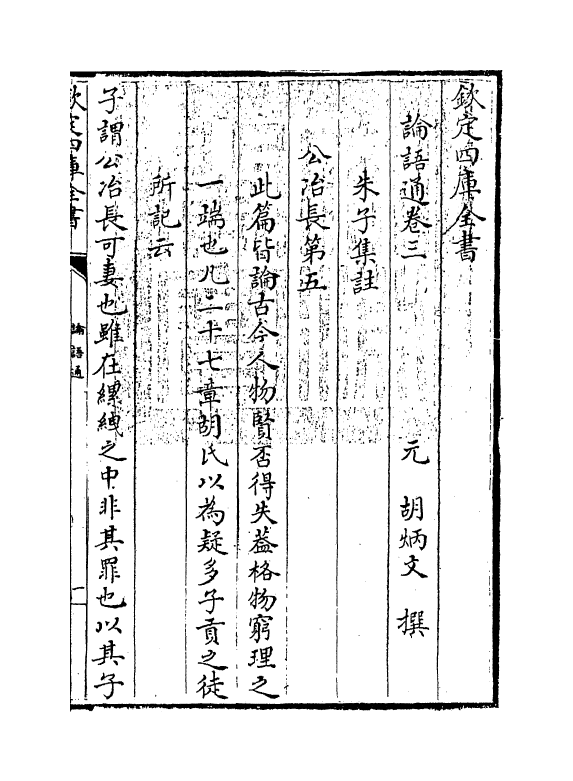 欽定四庫全書
論語通卷三　元　胡炳文　撰
朱子集註
公冶長第五
此篇皆論古今人物賢否得失蓋格物窮理之
一端也凡二十七章胡氏以為疑多子貢之徒
所記云
子謂公冶長可妻也雖在縲絏之中非其罪也以其子
欽定四庫全書
論語通
一